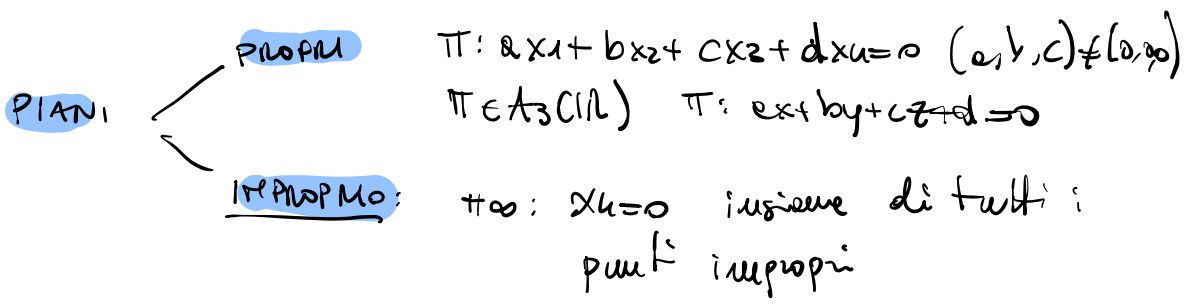 PROPRI π: ax1 + bx2 + cx3 + dx4=0 (a,b,c)≠(0,0,0)
PIANI π∈A3(IR) π: ax+by+cz+d=0
IMPROPRIO: π∞: x4=0 insieme di tutti i
punti impropri